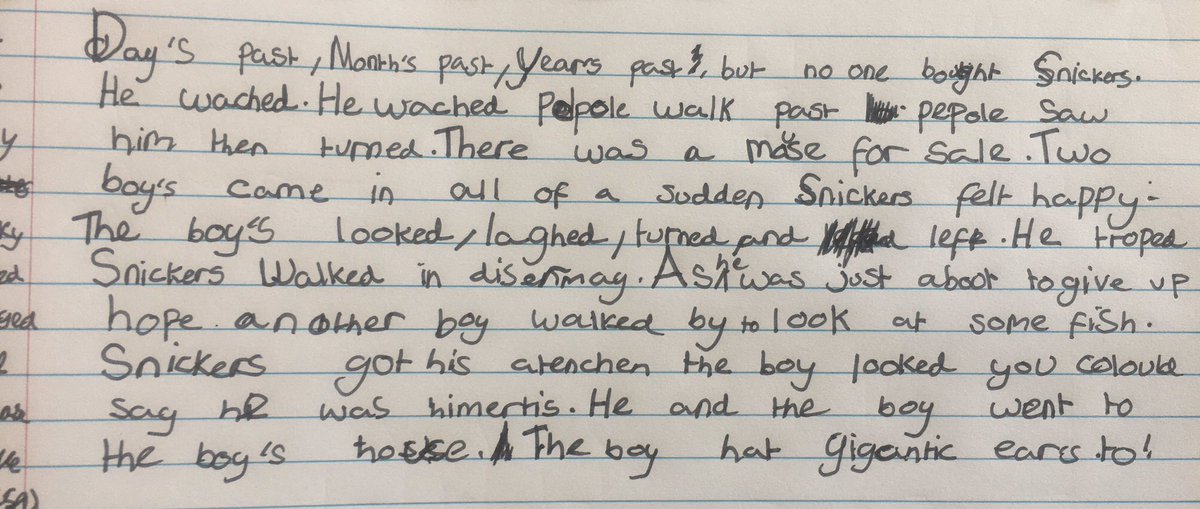 Day's past, Month's past, Years past, but no one bought Snickers.
He wached. He wached Pepole walk past pepole saw
him then turned. There was a mouse for sale. Two
boy's came in all of a sudden Snickers felt happy-
The boy's looked, laghed, turned and left. He troped
Snickers Walked in disenmay. As he was just aboot to give up
hope. another boy walked by to look at some fish.
Snickers got his atenchen the boy looked you coloube
say he was himertis. He and the boy went to
the boy's house. The boy hat gigantic ears to!